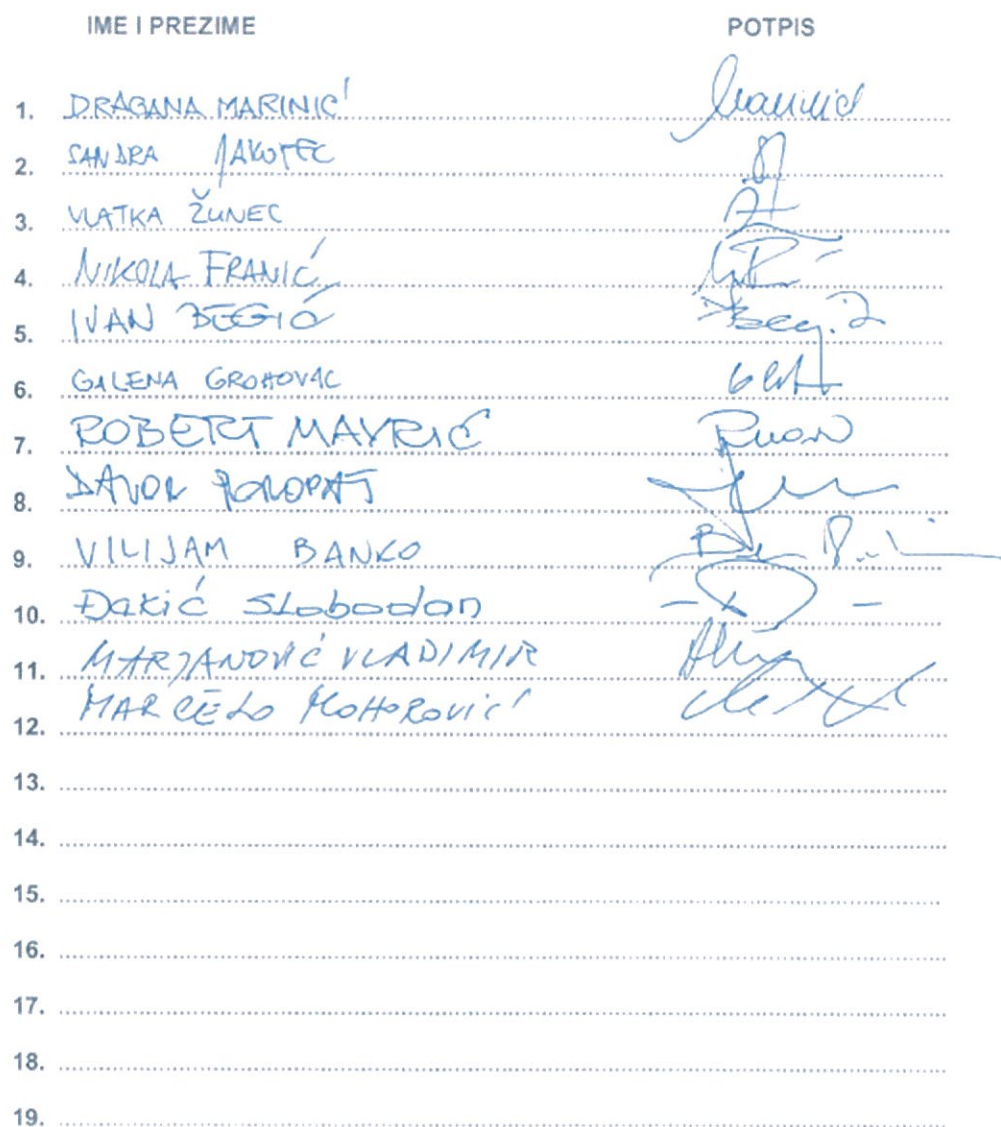 IME I PREZIME POTPIS
1. DRAGANA MARINIĆ Marinić
2. SANDRA JAKOTEC
3. VLATKA ŽUNEC
4. NIKOLA FRANIĆ
5. IVAN BEGIĆ
6. GALENA GROHOVAC
7. ROBERT MAVRIĆ
8. DAVOR POROPAT
9. VILIJAM BANKO
10. Đakić Slobodan
11. MARJANOVIĆ VLADIMIR
12. MARCELO MOHOROVIĆ
13.
14.
15.
16.
17.
18.
19.